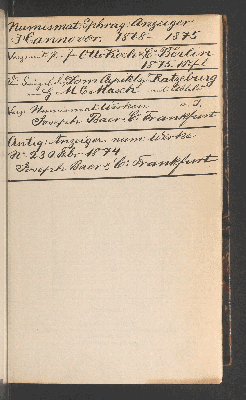 Numismat: Sphrag: Anzeiger
Hannover. 1868 - 1875
Otto Koch & Co Berlin
1875.
Dom Capitels Ratzeburg
M C Masch
Verz: Numismat. Werken
Joseph Baer & C: Frankfurt
Antiq: Anzeiger num: Werke
No 230 Febr 1874
Joseph Baer & C: Frankfurt